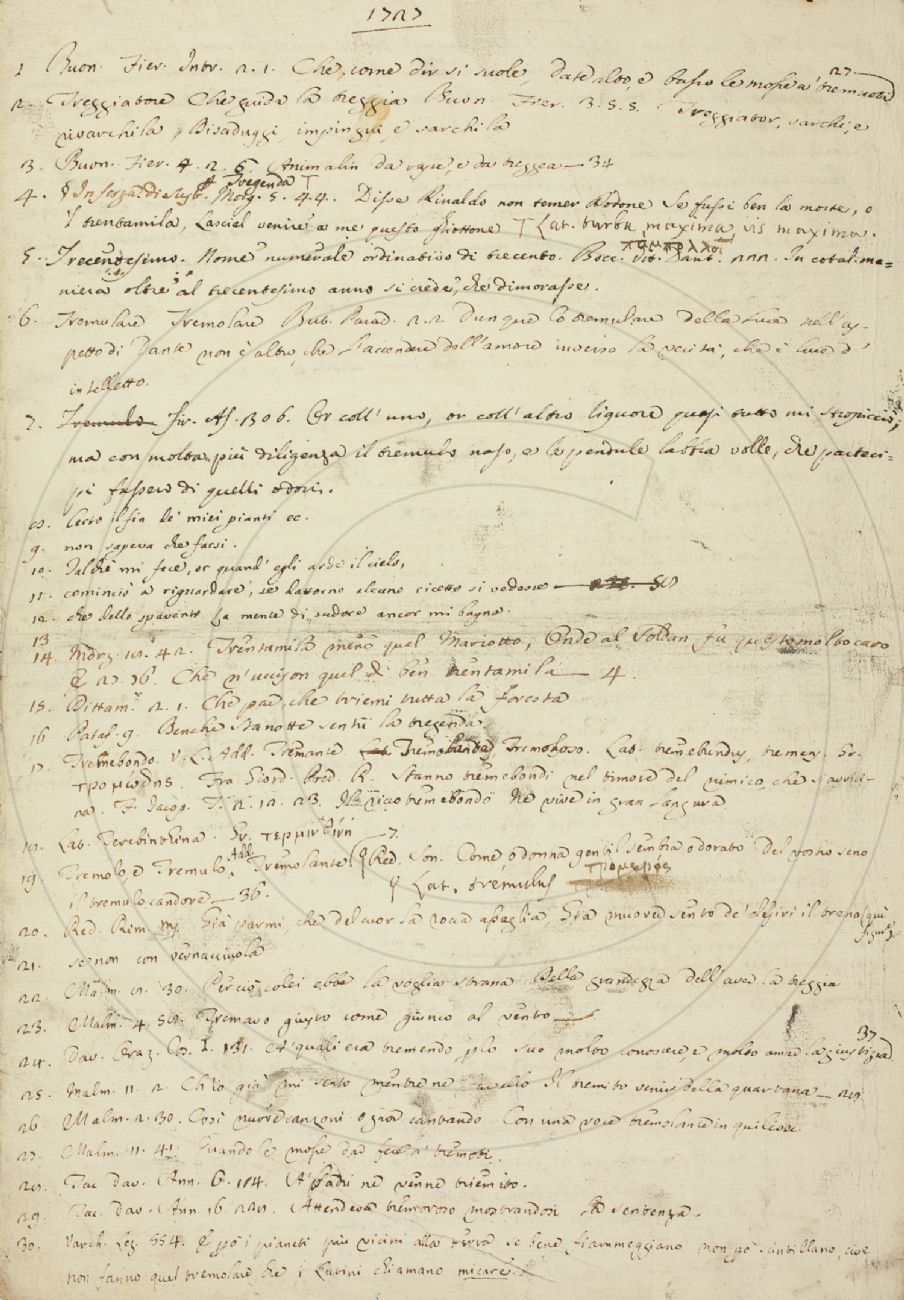 1727
1 Buon. Fier. Intr. 2. 1. Che, come dir si suole Date alto, e basso le mosse a' tremuoti 27
2. Treggiatore Che guida la treggia Buon. Fier. 3. 5. 5. Treggiator, varchi, e
rivarchi la Bisaduggi, impingui, e sarchi la
3. Buon. Fier. 4. 2. 6 Animalin da vasse, e da treggea — 34
Tregenda T
4. § In forza di sust. Morg. 5. 44. Disse Rinaldo non temer Dodone Se fussi ben la morte, o
trentamila, Lascial venire a me questo ghiottone T Lat. turba maxima, vis maxima.
παμπολλοι
5. Trecentesimo. Nome numerale ordinativo di trecento. Bocc. Vit. Dant. 222. In cotal ma=
niera oltre al trecentesimo anno si crede, che dimorasse.
6. Tremolare Tremolare But. Parad. 2. 2. Dunque lo tremulare della luce nell' as-
petto di Dante non è altro, che l'accendere dell'amore inverso la verità, che è luce d'
intelletto.
7. Tremulo Fir. As. 306. Or coll' uno, or coll' altro liquore quasi tutto mi stropicciò;
ma con molta più diligenza il tremulo naso, e le pendule labbra volle, che parteci-
pi fussero di quelli odori.
8. Certo il fin de' miei pianti ec.
9. non sapeva che farsi.
10. Tal che mi fece, or quand' egli arde il cielo,
11. cominciò a riguardare, se dattorno alcuno ricetto si vedesse 
12. che dello spavento La mente di sudore ancor mi bagna.
13
14. Morg. 18. 42. Trentamila menò quel Mariotto, Onde al Soldan fu questo molto caro
E 27. 76. Che n'uccison quel dì ben trentamila — 4.
15. Dittam. 2. 1. Che par, che triemi tutta la foresta
16. Pataf. 9. Benche stanotte sentii la tregenda
17. Tremebondo. V. L. Add. Tremante Tremoroso. Lat. tremebundus, tremens. Gr.
τρομωδης. Fra Giord. Pred. R. Stanno tremebondi nel timore del nimico, che s'avvici-
na. F. Jacop. T. 2. 12. 23. Il ricco tremebondo Ne vive in gran langura
18. Lat. Terebinthina. Gr. τερμινθίνη — 7.
19. Tremolo, e Tremulo Add. Tremolante Red. Son. Come o donna gentil sembra odorato Del vostro seno
§ Lat. tremulus τρομερός
il tremulo candore — 36.
20. Red. Rim. Già parmi, che del cuor la rocca assaglia, Già muover sento de' desiri il treno (qui
figur.)
21. se non con vernacciuola
22. Malm. 8. 30. Perciò colei ebbe la voglia strana Della grandezza dell'aver la treggia
23. Malm. 4. 58. Tremavo giusto come giunco al vento —
24. Dav. Oraz. Cos. I. 131. A' quali era tremendo plo suo molto conoscere e molto amar la giustizia 37
25. Malm. 11. 2. Ch'io già mi sento mentre ne Il tremito venir della quartana — 29
26. Malm. 2. 30. Così nuove canzoni ognor cantando Con una voce tremolante in quilio
27. Malm. 11. 41. Quando le mosse dar fece a' tremoti.
28. Tac. Dav. Ann. 6. 114. A' Padri ne venne triemito.
29. Tac. Dav. Ann. 16. 228. Attendeva tremoroso mostrandosi la sentenza.
30. Varch. Lez. 554. E poi i pianeti più vicini alla terra se bene fiammeggiano non pò scintillano, cioè
non fanno quel tremolare, che i Latini chiamano micare.